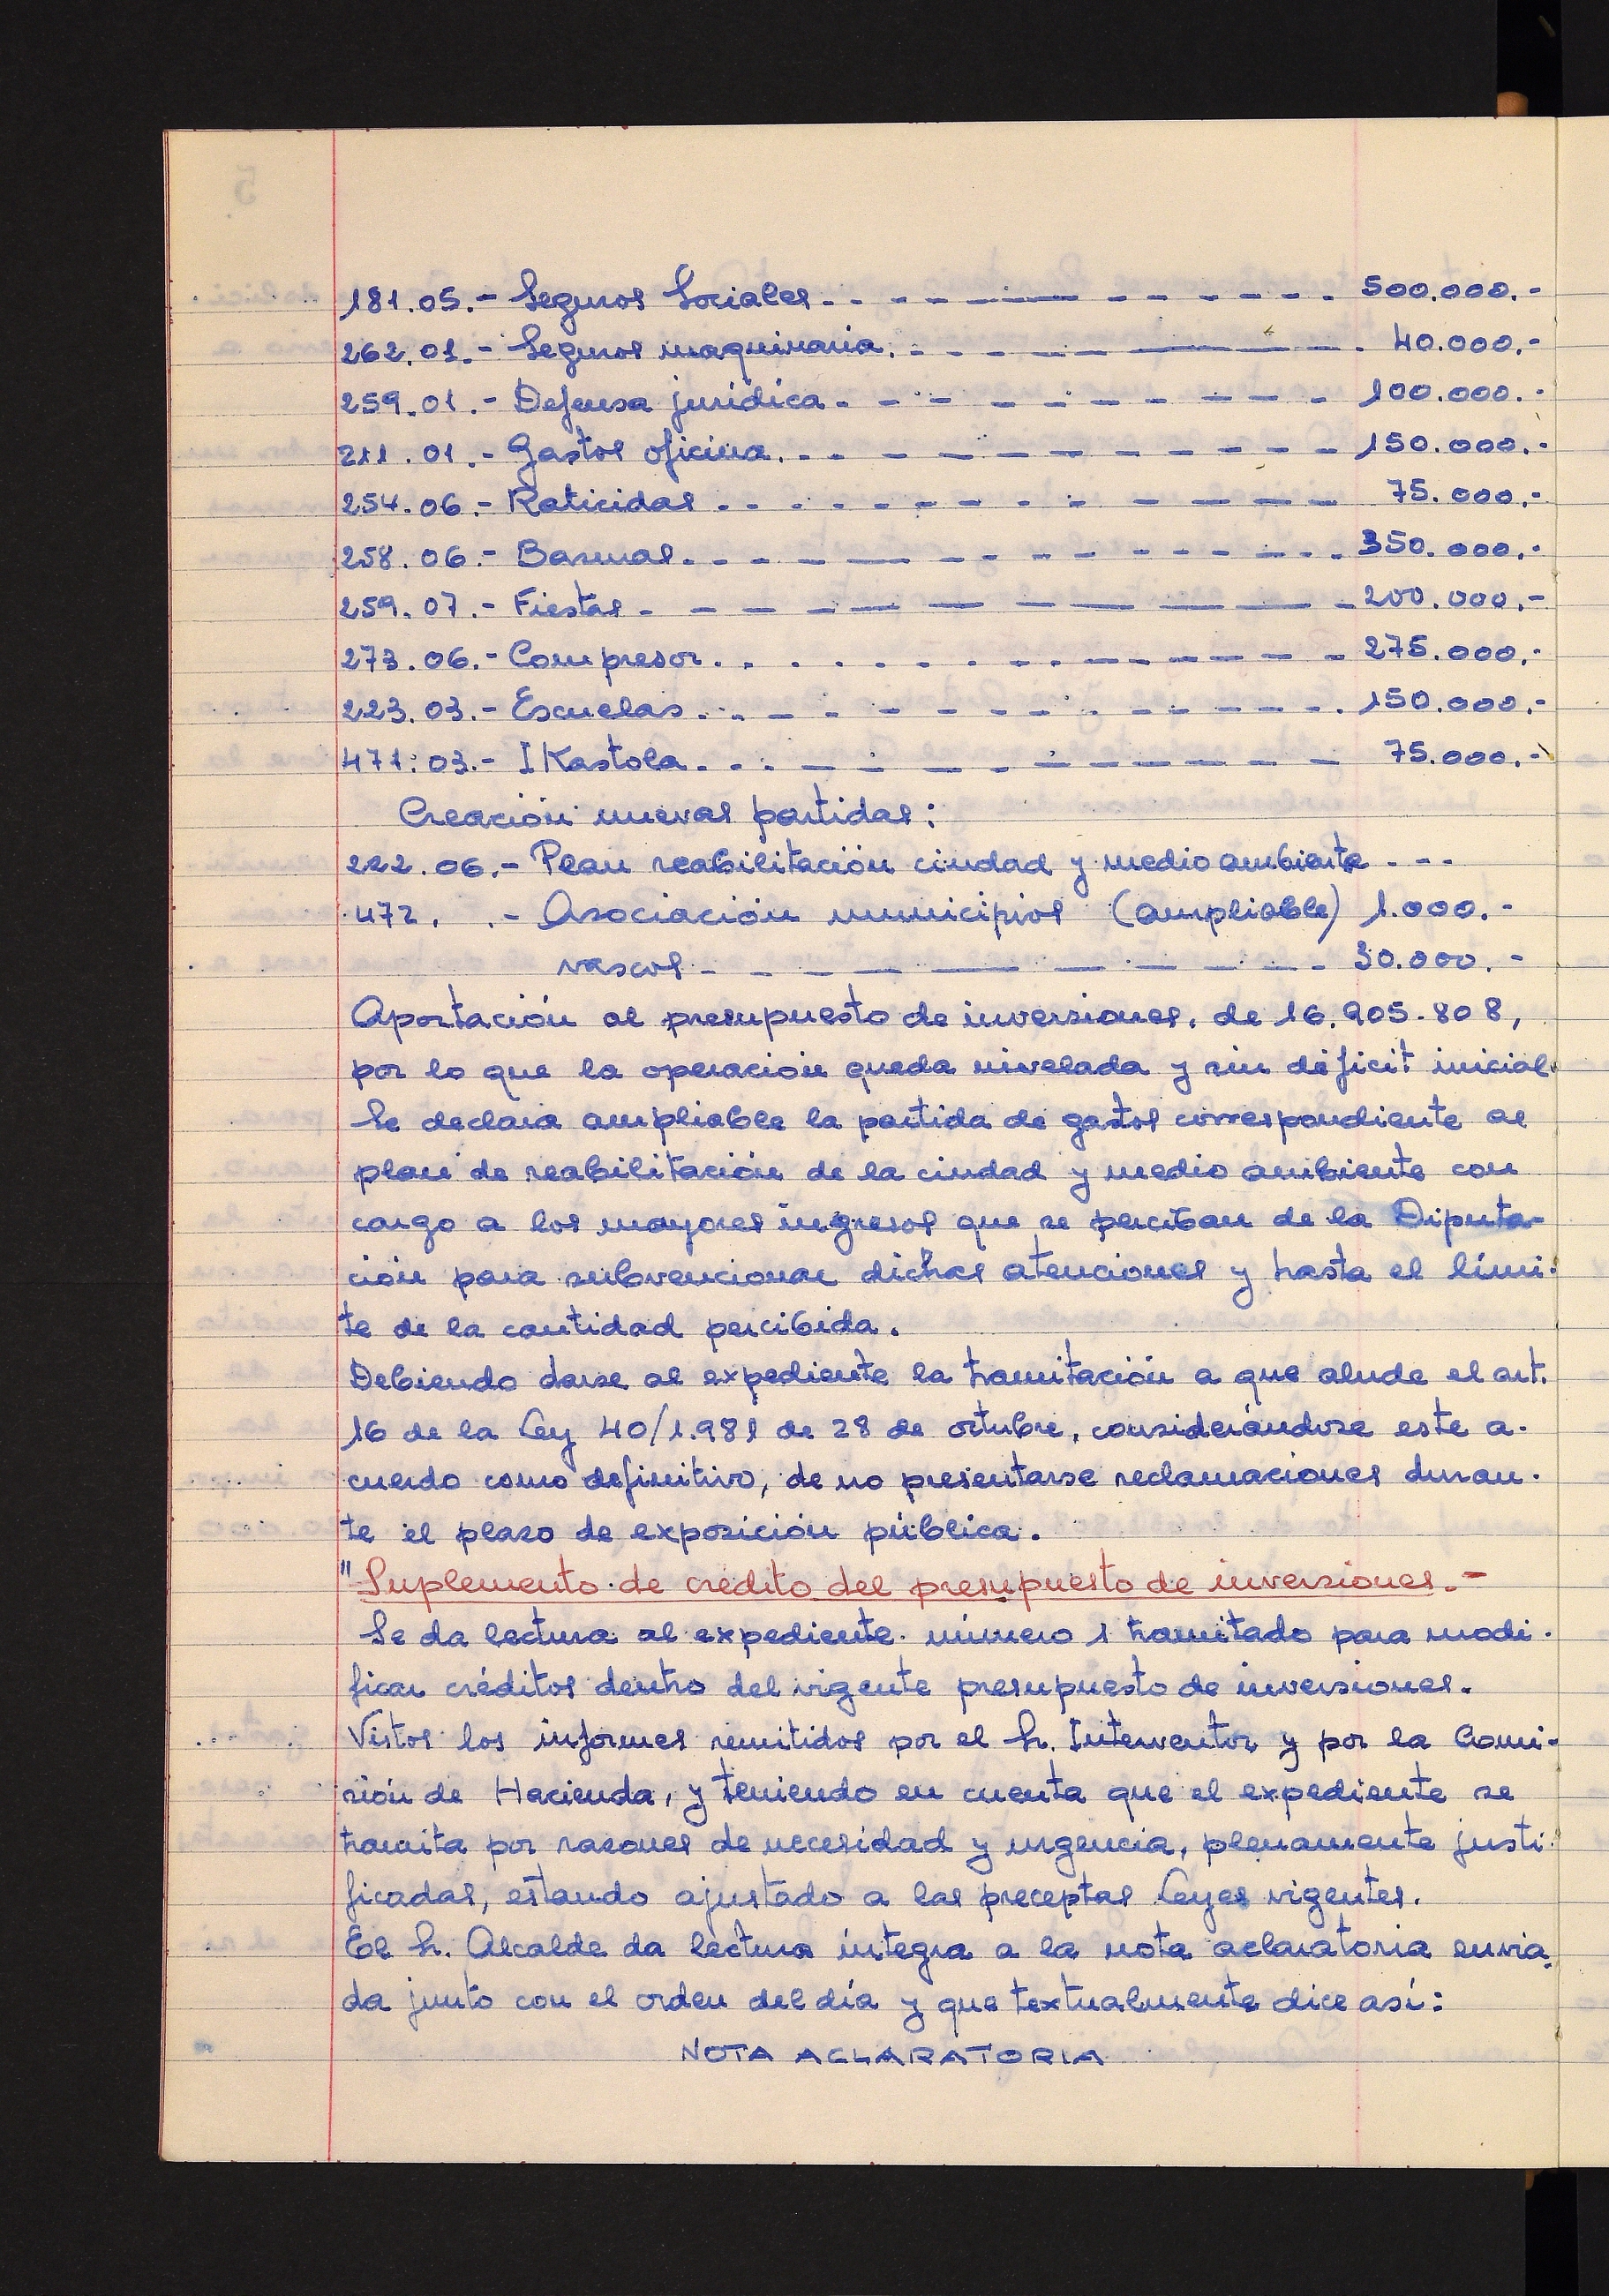 181.05.- Seguros Sociales. - - - - - - - - - 500.000.-
262.01.- Seguros maquinaria. - - - - - - - 40.000.-
259.01.- Defensa jurídica - - - - - - - - - 100.000.-
211.01.- Gastos oficina. - - - - - - - - - 150.000.-
254.06.- Raticidas - - - - - - - - - - 75.000.-
258.06.- Basuras. - - - - - - - - - - 350.000.-
259.07.- Fiestas - - - - - - - - - 200.000.-
273.06.- Compresor. . . . . . - - - - - - 275.000.-
223.03.- Escuelas. - - - - - - - - - - 150.000.-
471.03.- IKastola. - - - - - - - - - 75.000.-
Creación nuevas partidas:
222.06.- Plan reabilitación ciudad y medio ambiente - - -
472. .- Asociación municipios (ampliable) 1.000.-
vascos - - - - - - - - - 30.000.-
Aportación al presupuesto de inversiones, de 16.905.808,
por lo que la operación queda nivelada y sin déficit inicial.
Se declara ampliable la partida de gastos correspondiente al
plan de reabilitación de la ciudad y medio ambiente con
cargo a los mayores ingresos que se perciban de la Diputa-
ción para subvencionar dichas atenciones y hasta el lími-
te de la cantidad percibida.
Debiendo darse al expediente la tramitación a que alude el art.
16 de la Ley 40/1.981 de 28 de octubre, considerándose este a-
cuerdo como definitivo, de no presentarse reclamaciones duran-
te el plazo de exposición pública.
"Suplemento de crédito del presupuesto de inversiones.-
Se da lectura al expediente número 1 tramitado para modi-
ficar créditos dentro del vigente presupuesto de inversiones.
Vistos los informes remitidos por el Sr. Interventor y por la Comi-
sión de Hacienda, y teniendo en cuenta que el expediente se
tramita por razones de necesidad y urgencia, plenamente justi-
ficadas, estando ajustado a las preceptas Leyes vigentes.
El Sr. Alcalde da lectura íntegra a la nota aclaratoria envia-
da junto con el orden del día y que textualmente dice así:
NOTA ACLARATORIA